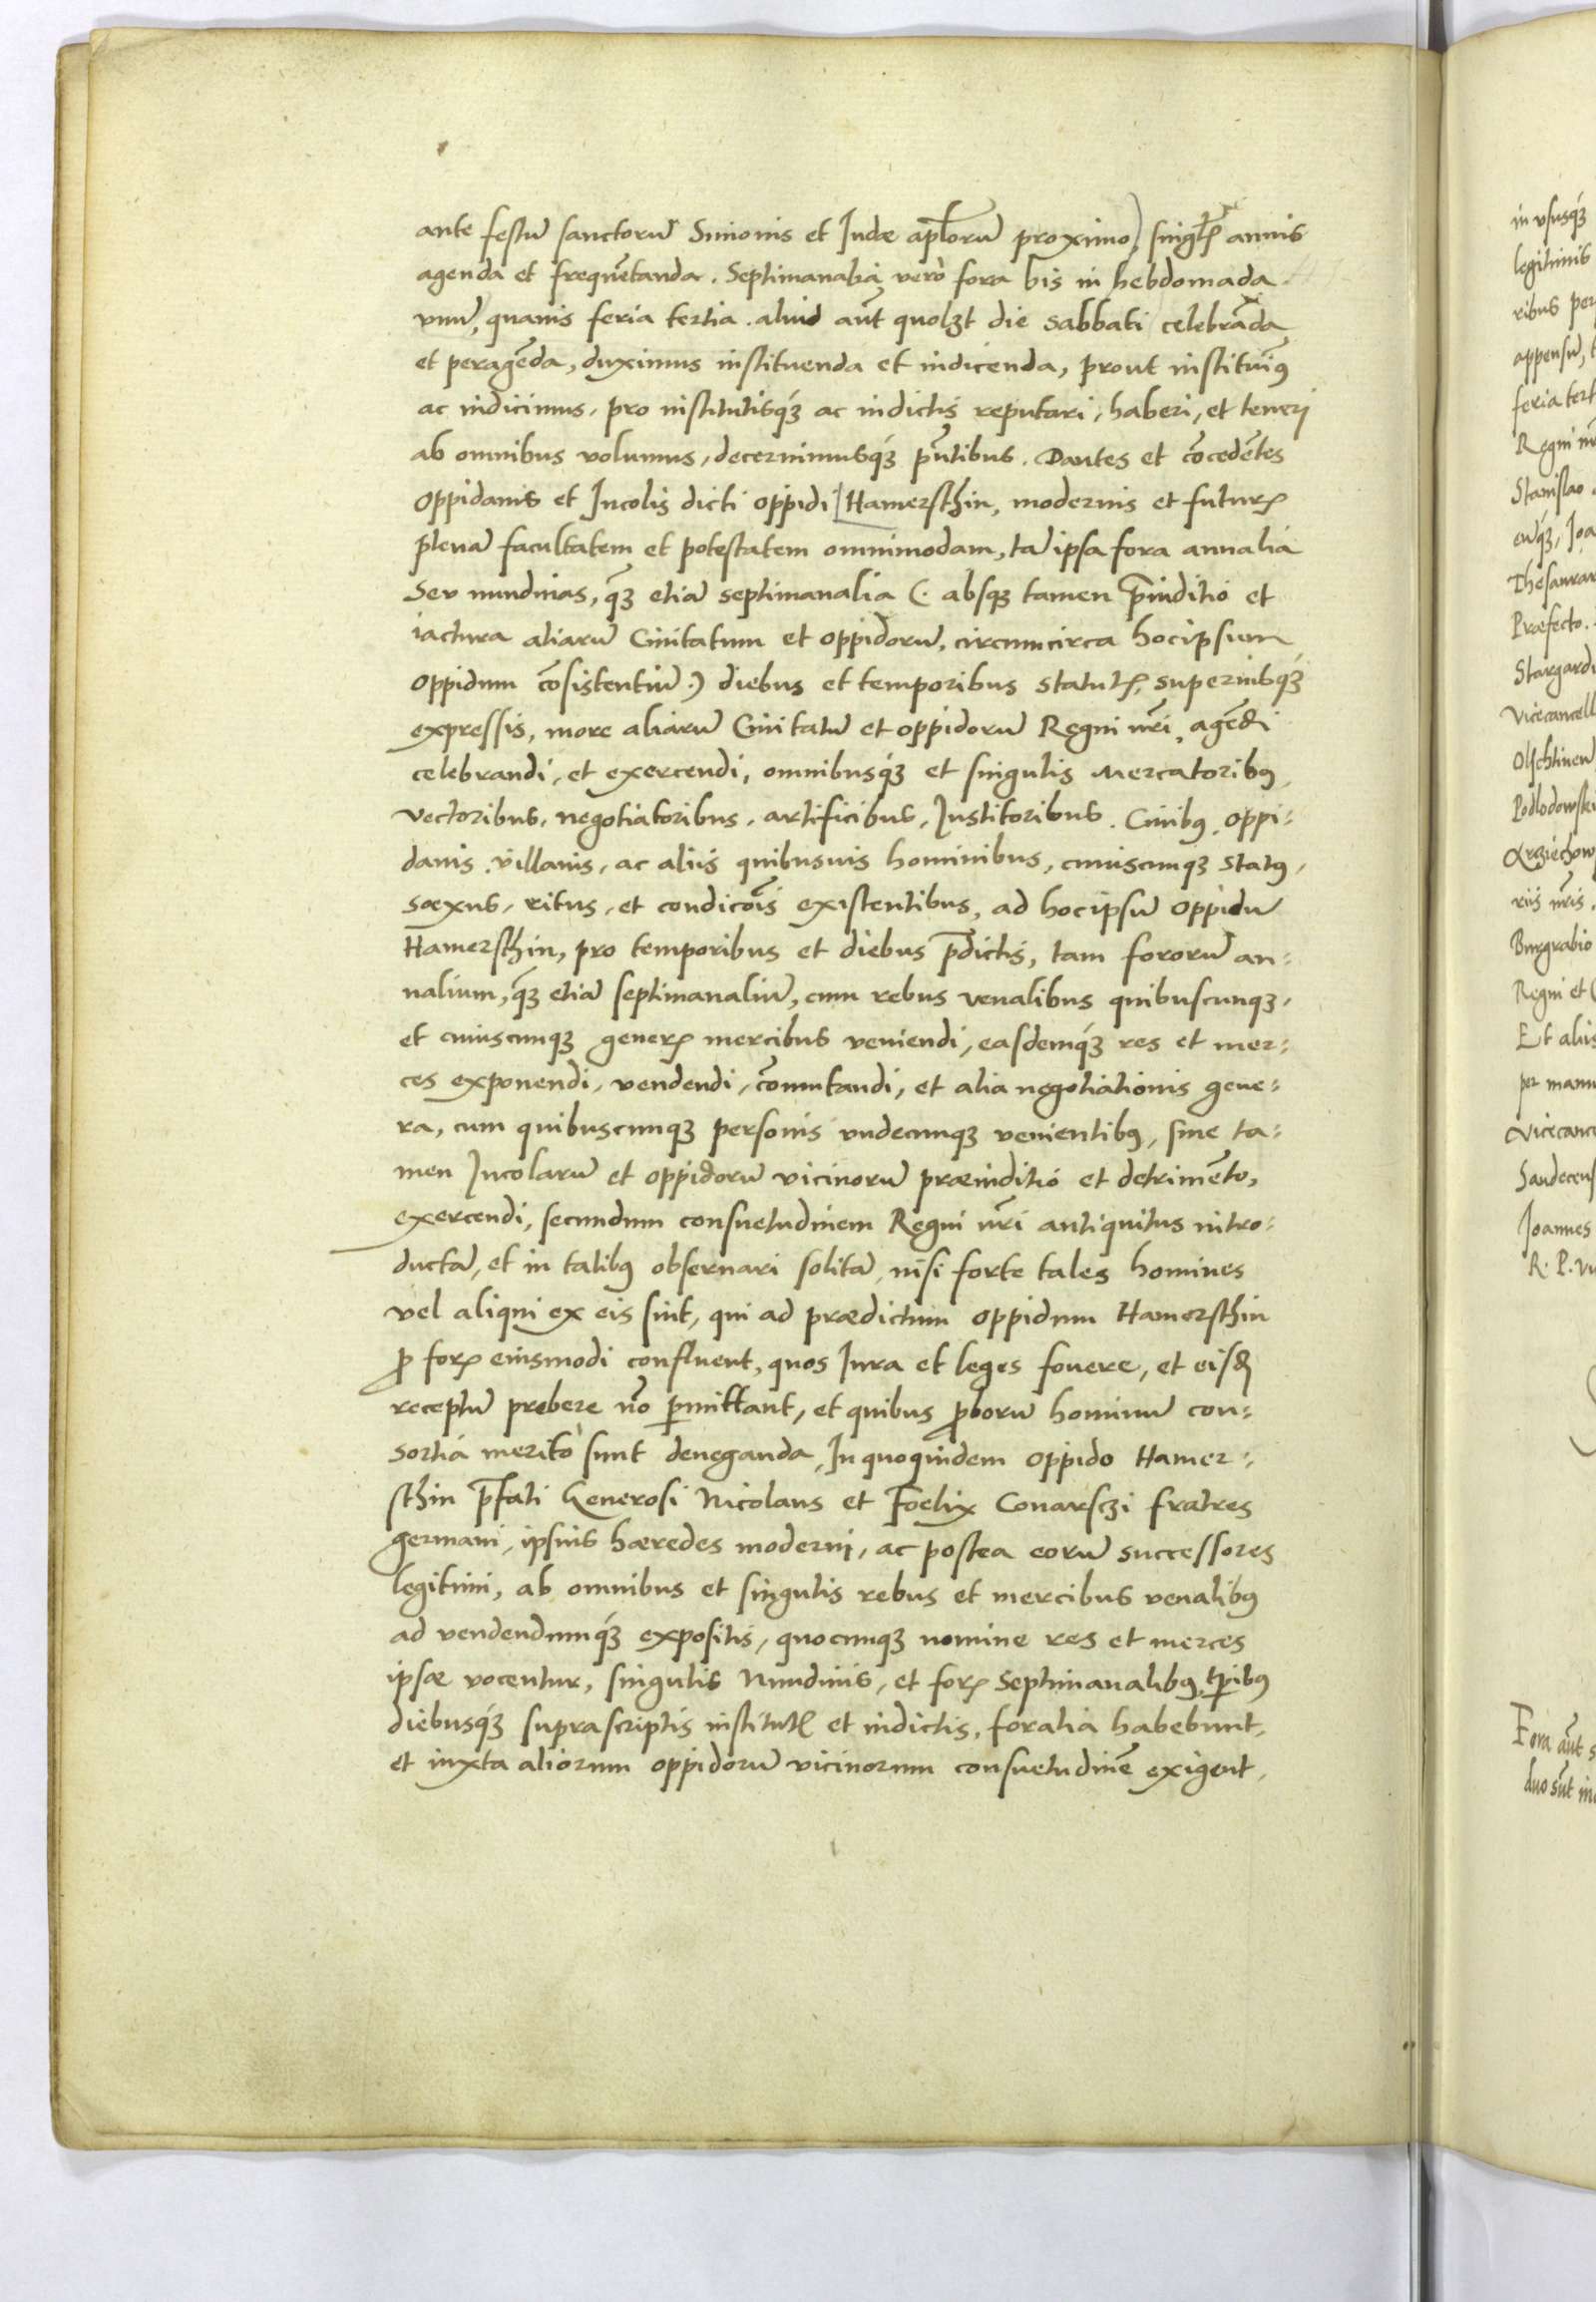 ante festū sanctorū Simonis et Iudæ apl̄orū proximo) singl̄ꝭ annis
agenda et frequētanda. Septimanalia verò fora bis in hebdomada
vnū, quauis feria tertia. aliud aūt quolꝫt die Sabbati celebrāda
et peragēda, duximus instituenda et indicenda, prout instituim̄ꝰ
ac indicimus, pro institutisq́ꝫ ac indictis reputari, haberi, et teneri
ab omnibus volumus, decernimusq́ꝫ pn̄tibus. Dantes et cōcedētes
oppidanis et Incolis dicti oppidi [Hamersthin, modernis et futurꝭ
plenā facultatem et potestatem omnimodam, tā ipsa fora annalia
Seu nundinas, q̄ꝫ etiā septimanalia (. absqꝫ tamen p̄iuditio et
iactura aliarū Ciuitatum et oppidorū, circumcirca hocipsum
oppidum cōsistentiū .) diebus et temporibus statutꝭ, superiusq́ꝫ
expressis, more aliarū Ciuitatū et oppidorū Regni nr̄i, agēdi
celebrandi, et exercendi, omnibusq́ꝫ et singulis Mercatoribꝰ,
Vectoribus, negotiatoribus, artificibus, Institoribus. Ciuibꝰ, oppi-
danis, villanis, ac aliis quibusuis hominibus, cuiuscunqꝫ statꝰ,
sæxus, ritus, et condicōis existentibus, ad hocipsū oppidū
Hamersthin, pro temporibus et diebus p̄dictis, tam fororū an-
nalium, q̄ꝫ etiā septimanaliū, cum rebus venalibus quibuscunqꝫ,
et cuiuscunqꝫ generꝭ mercibus veniendi, easdemq́ꝫ res et mer-
ces exponendi, vendendi, cōmutandi, et alia negotiationis gene-
ra, cum quibuscunqꝫ personis vndecunqꝫ venientibꝰ, sine ta-
men Incolarū et oppidorū vicinorū præiuditio et detrimēto,
exercendi, secundum consuetudinem Regni nr̄i antiquitus intro-
ductā, et in talibꝰ obseruari solitā, nisi forte tales homines
vel aliqui ex eis sint, qui ad prædictum oppidum Hamersthin
ꝓ forꝭ eiusmodi confluent, quos Iura et leges fouere, et eisdē
receptū prebere nō ꝑmittant, et quibus ꝓborū hominū con-
sortia meritò sunt deneganda, In quoquidem oppido Hamer-
sthin p̄fati Generosi Nicolaus et Foelix Conarsczi fratres
germani, ipsius hæredes moderni, ac postea eorū successores
legitimi, ab omnibus et singulis rebus et mercibus venalibꝰ
ad vendendumq́ꝫ expositis, quocunqꝫ nomine res et merces
ipsæ vocentur, singulis Nundinis, et forꝭ Septimanalibꝰ, tꝑibꝰ
diebusq́ꝫ suprascriptis institutꝭ et indictis, foralia habebunt,
et iuxta aliorum oppidorū vicinorum consuetudinē exigent,
in vsusq́ꝫ
legitimis
ribus per
appensū,
feria tert
Regni nr̄
Stanislao
Thesaurar
Præfecto.
Stargardi
Vicecancell
Podlodowski
riis nr̄is,
Burgrabio
Regni et
Et aliis
per manu
Vicecanc
Sandecens
Joannes
R. P. Vi
Fora aūt s
duo sūt in